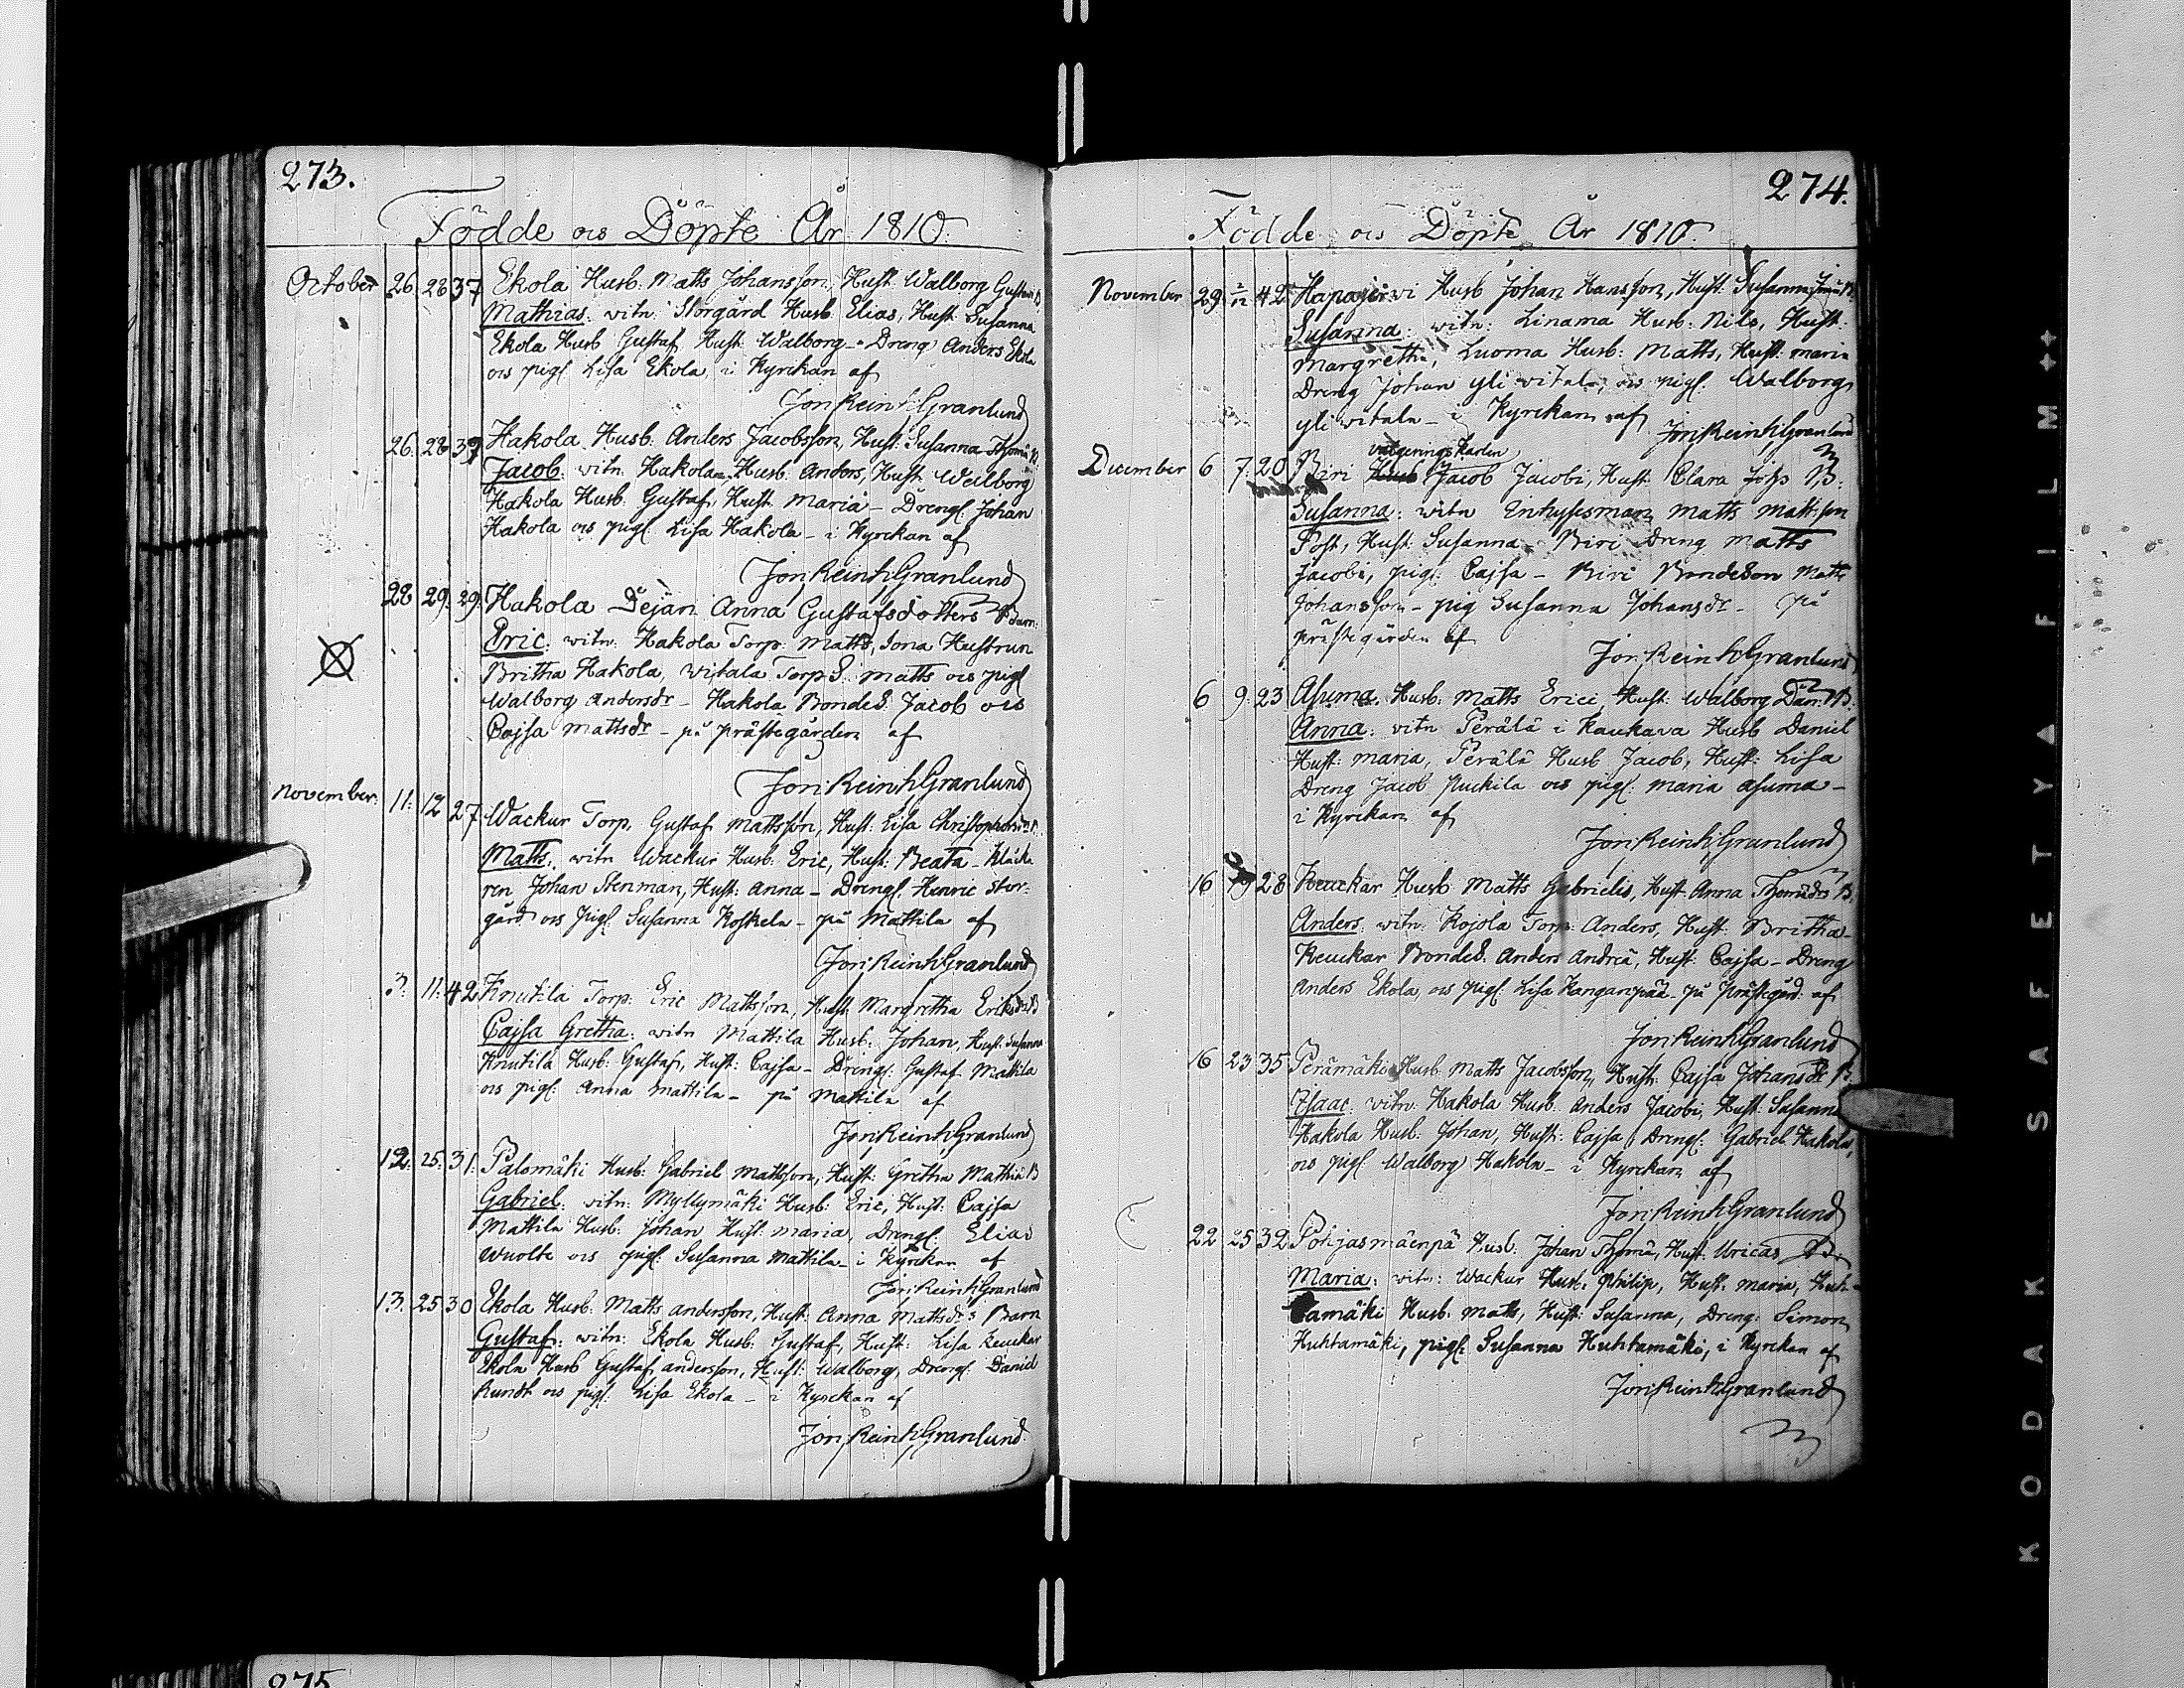 273.
Födde ocs Döpte År 1810.
October 26. 28 37 Ekola Husb. Matts Johansson, Hust. Walborg
Mathias: witn: Storgård Husb. Elias, Hust. Susanna
Ekola Husb Gustaf, Hust Walborg - Dreng Anders Ekola
ocs pigf. Lisa Ekola, i Kyrckan af
Joh: Reinh: Granlund
26. 28 39 Hakola Husb: Anders Jacobsson, Hust: Susanna
Jacob. witn Hakola Husb. Anders, Hust Walborg
Hakola Husb. Gustaf, Hust. Maria - Drengf. Johan
Hakola ocs pigf. Lisa Hakola - i Kyrckan af
Joh: Reinh: Granlund
28 29. 29. Hakola Dejan Anna Gustafsdotters Barn
Eric: witn: Hakola Torp: Matts, Hustrun
Britha Hakola, Witala Torp S. Matts ocs pigf
Walborg Andersdr - Hakola BondeS. Jacob ocs
Cajsa Mattsdr - på prästegården af
Joh: Reinh: Granlund
November: 11: 12 27 Wackur Torp. Gustaf Mattsson, Hust: Lisa
Matts: witn Wackur Husb: Eric, Hust: Beata - Klåcka
ren Johan Stenman, Hust: Anna - Drengf. Henric Stor-
gård ocs pigf. Susanna Koskela - på Mattila af
Joh: Reinh: Granlund
3: 11: 42 Knutila Torp: Eric Mattsson, Hust. Margretha Eriksdrs B
Cajsa Gretha: witn Mattila Husb. Johan, Hust: Susanna
Knutila Husb: Gustaf, Hust: Cajsa - Drengf: Gustaf Mattila
ocs pigf: Anna Mattila - på Mattila af
Joh: Reinh: Granlund
12. 25. 31. Palomäki Husb: Gabriel Mattsson, Hust: Gretha Mathiæ B
Gabriel: witn: Myllymäki Husb: Eric, Hust: Cajsa
Mattila Husb: Johan Hust: Maria, Drengf. Elias
Wuolte ocs pigf: Susanna Mattila - i Kyrckan af
Joh: Reinh: Granlund
13. 25 30 Ekola Husb: Matts Andersson, Hust: Anna Mattsdrs Barn
Gustaf: witn: Ekola Husb: Gustaf, Hust: Lisa Keuckar
Ekola Husb Gustaf Andersson, Hust: Walborg, Drengf: Daniel
ocs pigf: Lisa Ekola - i Kyrckan af
Joh: Reinh: Granlund
274.
Födde ocs Döpte År 1810.
November 29. 2/12 42 Hapajärvi Husb Johan Hansson, Hust: Susanna
Susanna: witn: Linama Husb: Nils, Hust:
Margretha, Luoma Husb: Matts, Hust: Maria
Dreng Johan Yli witala, ocs pigf: Walborg
Yli witala - i Kyrckan af
Joh: Reinh: Granlund
December 6 7. 20 Piri Jacob Jacobi, Hust Clara Johs B:
Susanna: witn Inhysesman Matts Mattsson
Post, Hust: Susanna - Piri Dreng Matts
Jacobi, pigf: Cajsa - Piri BondeSon Matts
Johansson - pig Susanna Johansdr - på
prästegården af
Joh: Reinh: Granlund
6 9. 23 Asuma. Husb: Matts Erici, Hust: Walborg B:
Anna: witn Perälä i Kaukava Husb Daniel
Hust: Maria, Perälä Husb Jacob, Hust: Lisa
Dreng Jacob Puckila ocs pigf: Maria Asuma -
i Kyrckan af
Joh: Reinh: Granlund
16 19 28 Keuckar Husb Matts Gabrielis, Hust Anna Thomædrs B.
Anders. witn: Kojola Torp: Anders, Hust: Britha -
Keuckar BondeS. Anders Andreæ, Hust: Cajsa - Dreng
Anders Ekola, ocs pigf: Lisa Kanganpää - på prästegård: af
Joh: Reinh: Granlund
16 23 35 Perämäki Husb. Matts Jacobsson, Hust: Cajsa Johansdr B.
Isaac. witn: Hakola Husb. Anders Jacobi, Hust: Susanna
Hakola Husb. Johan, Hust: Cajsa, Drengf: Gabriel Hakola,
ocs pigf. Walborg Hakola - i Kyrckan af
Joh: Reinh: Granlund
22 25 32 Pohjasmäenpä Husb: Johan Thomæ, Hust: Uricas B:
Maria: witn: Wackur Husb: Philip, Hust: Maria, Huh-
tamäki Husb: Matts, Hust: Susanna, Dreng: Simon
Huhtamäki, pigf: Susanna Huhtamäki, i Kyrckan af
Joh: Reinh: Granlund
275
KODAK SAFETY FILM